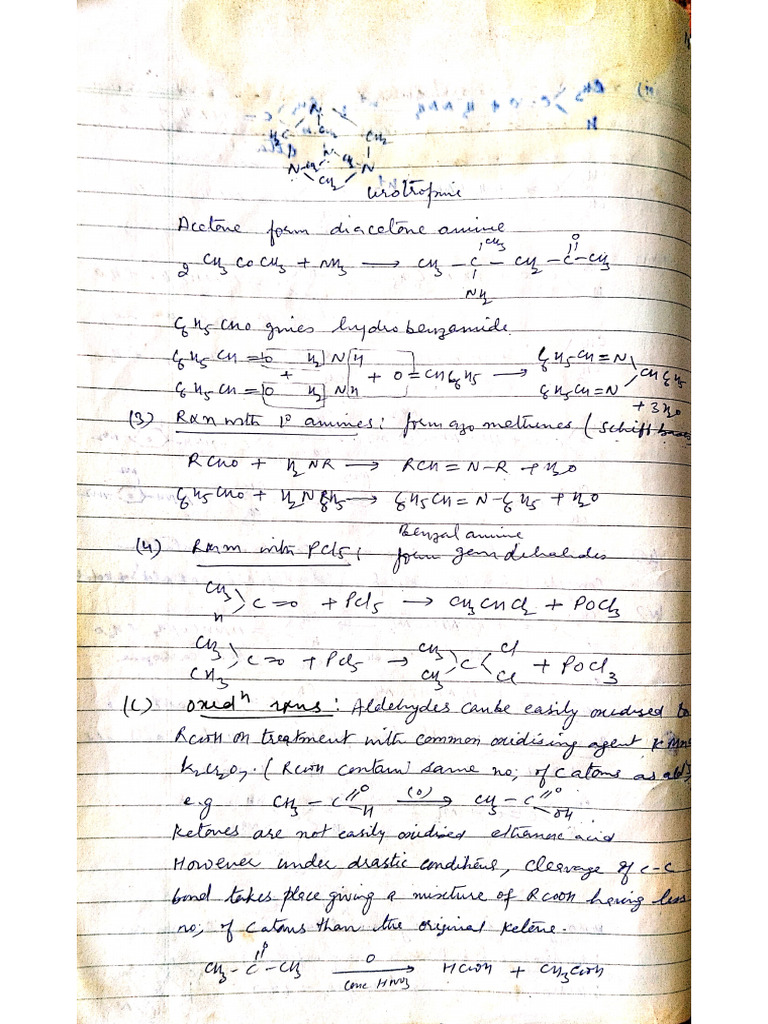 N
H2C CH2 CH2
N
N CH2 N
CH2
urotropine
Acetone form diacetone amine
2 CH3COCH3 + NH3 → CH3 - C(CH3)(NH2) - CH2 - C(=O) - CH3
C6H5CHO gives hydrobenzamide
C6H5CH = O H2 N H
+ + O = CHC6H5 → C6H5CH = N
C6H5CH = O H2 N H C6H5CH = N CHC6H5
+ 3H2O
(3) Rxn with 1° amines: form azomethenes (Schiff bases
RCHO + H2NR → RCH = N - R + H2O
C6H5CHO + H2N C6H5 → C6H5CH = N - C6H5 + H2O
Benzal amine
(4) Rxn with PCl5: form gem dihalides
CH3 H C = O + PCl5 → CH3CHCl2 + POCl3
CH3 CH3 C = O + PCl5 → CH3 CH3 C Cl Cl + POCl3
(C) Oxidn rxns: Aldehydes can be easily oxidised to
RCOOH on treatment with common oxidising agent KMn
K2Cr2O7. (RCOOH contain same no; of C atoms as ald
e.g CH3 - C =O H (O) → CH3 - C =O OH
Ketones are not easily oxidised ethanoic acid
However under drastic conditions, cleavage of C-C
bond takes place giving a mixture of RCOOH having less
no; of C atoms than the original ketone.
CH3 - C(=O) - CH3 O conc HNO3 → HCOOH + CH3COOH